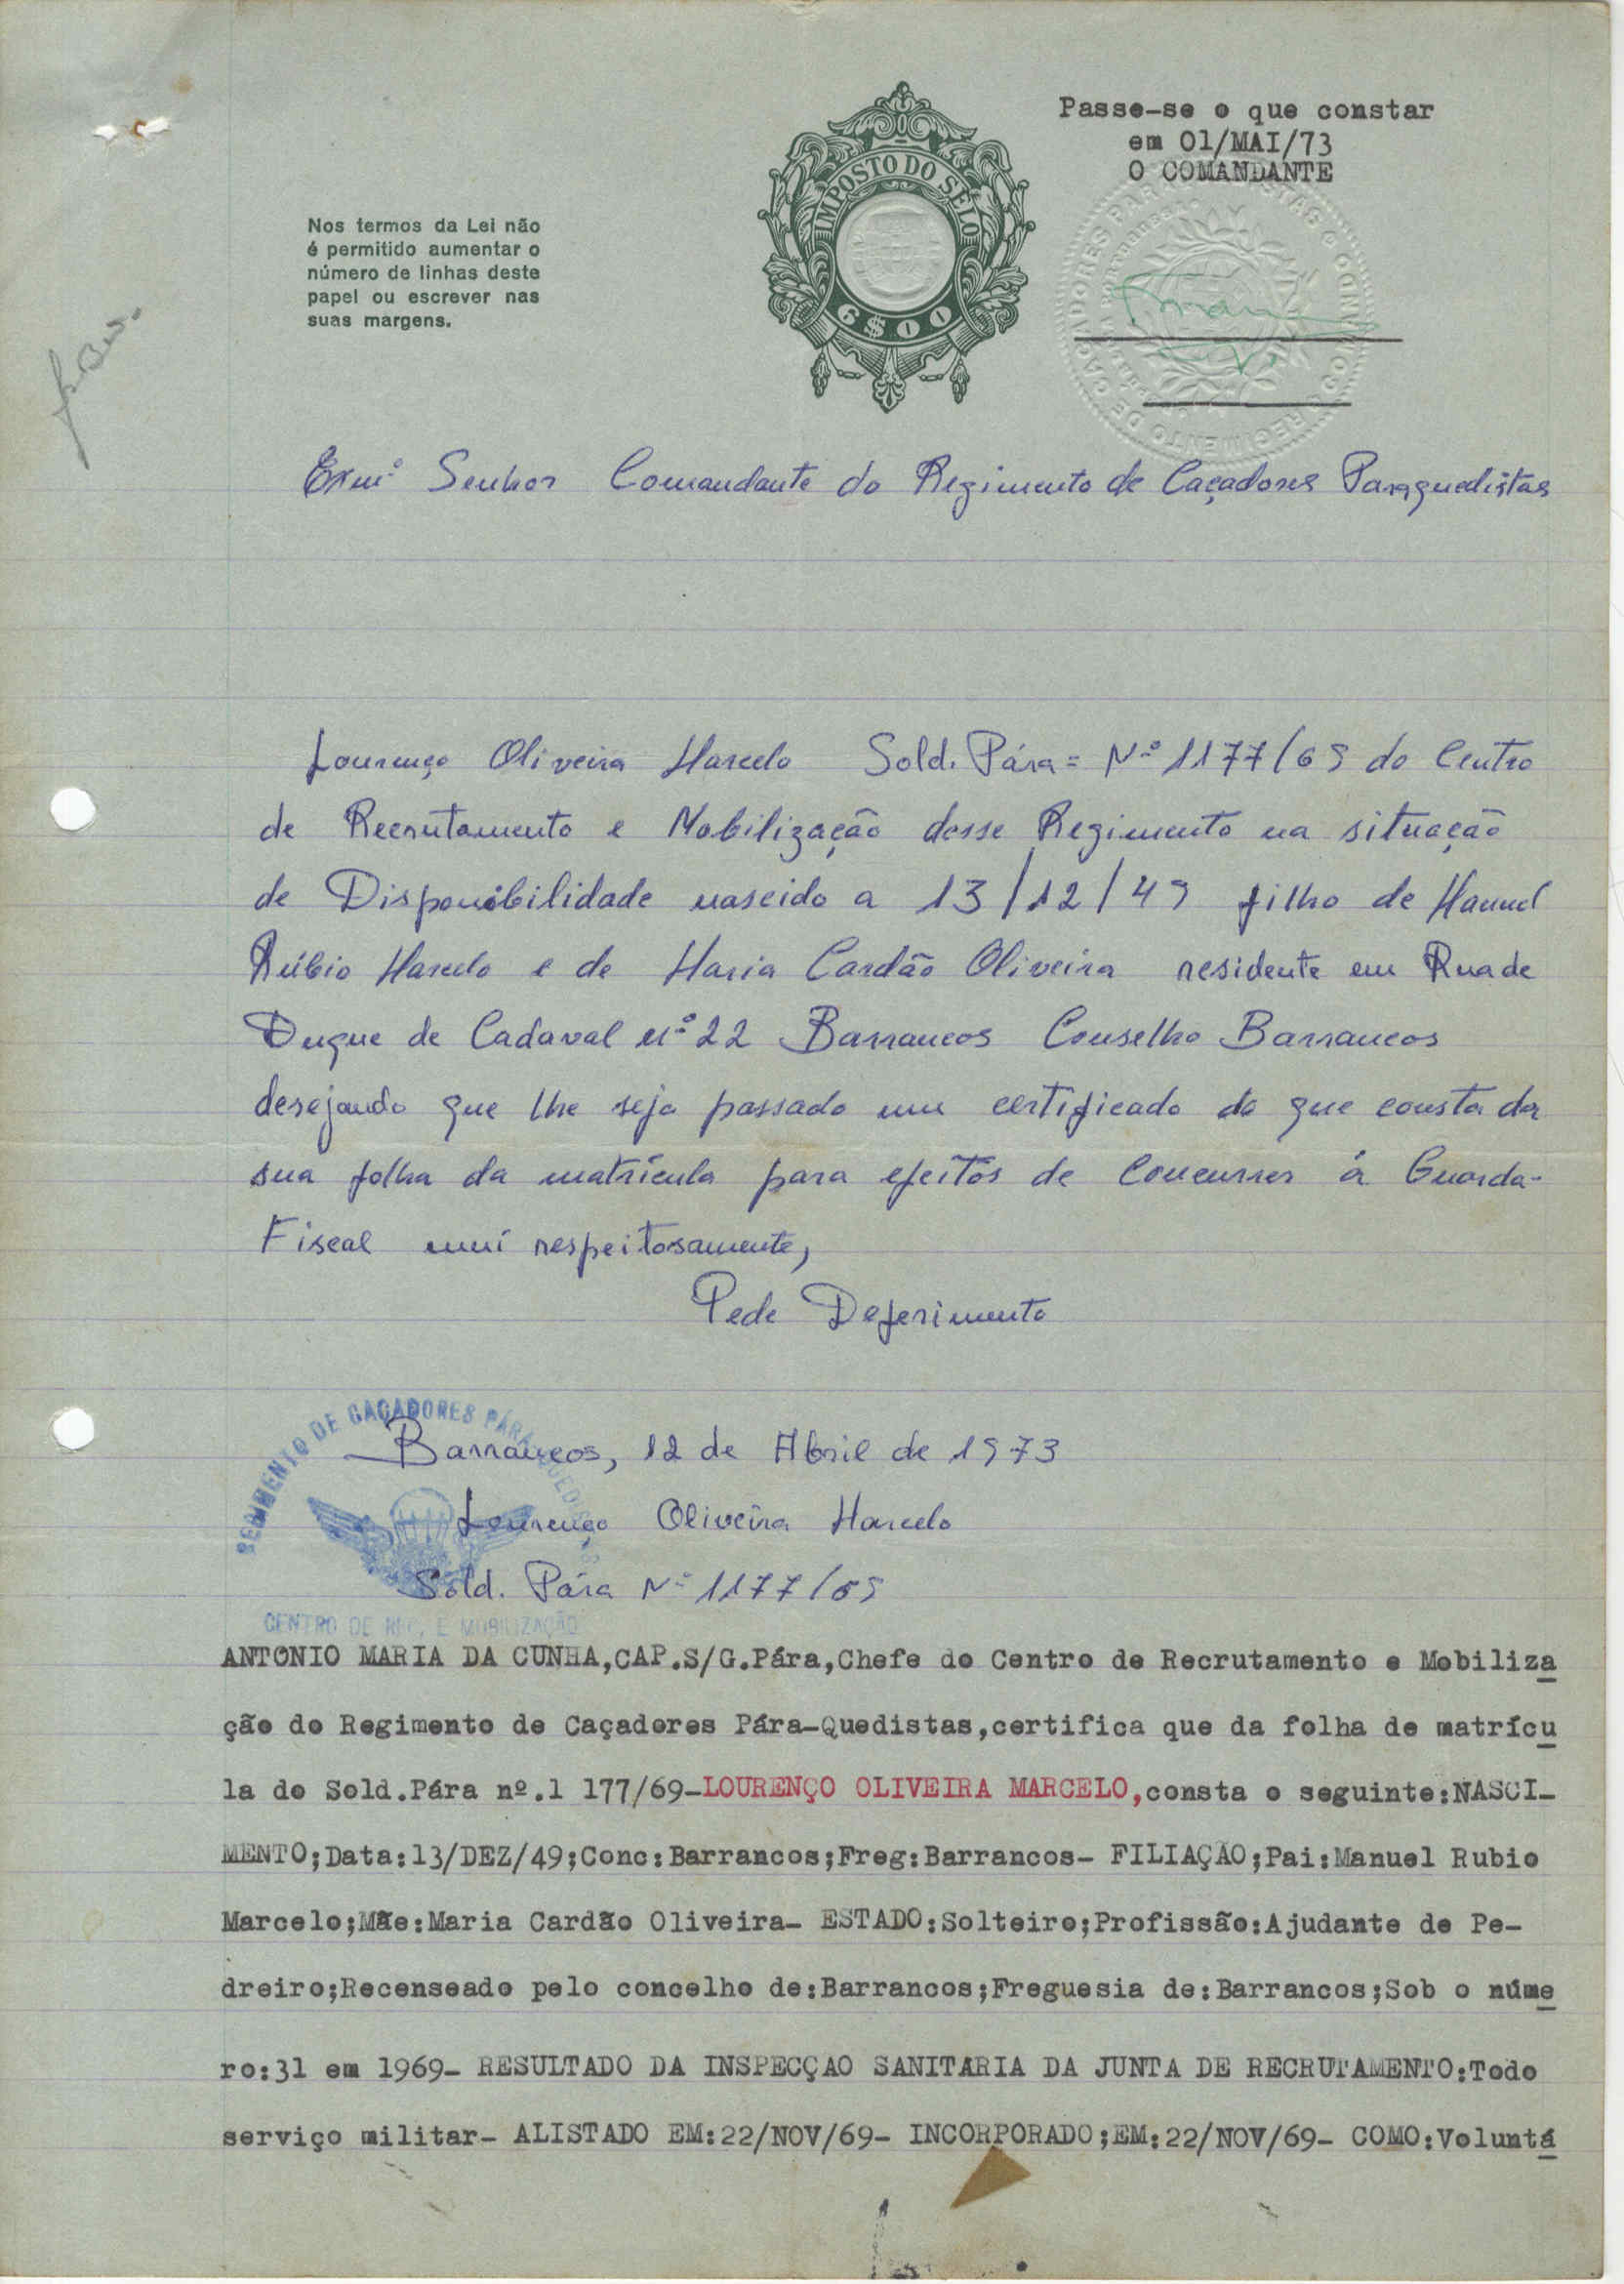 Passe-se o que constar
em 01/MAI/73
O COMANDANTE
IMPOSTO DO SELO
6$00
Nos termos da Lei não
é permitido aumentar o
número de linhas deste
papel ou escrever nas
suas margens.
Exmº Senhor Comandante do Regimento de Caçadores Paraquedistas
Lourenço Oliveira Marcelo Sold. Pára = Nº 1177/69 do Centro
de Recrutamento e Mobilização desse Regimento na situação
de Disponibilidade nascido a 13/12/49 filho de Manuel
Rúbio Marcelo e de Maria Cardão Oliveira residente em Rua de
Duque de Cadaval nº 22 Barrancos Conselho Barrancos
desejando que lhe seja passado um certificado do que consta da
sua folha da matrícula para efeitos de Concurrer à Guarda-
Fiscal muí respeitosamente,
Pede Deferimento
REGIMENTO DE CAÇADORES PÁRAQUEDISTAS
Barrancos, 12 de Abril de 1973
Lourenço Oliveira Marcelo
Sold. Pára Nº 1177/69
CENTRO DE REC. E MOBILIZAÇÃO
ANTONIO MARIA DA CUNHA,CAP.S/G.Pára,Chefe do Centro de Recrutamento e Mobiliza
ção do Regimento de Caçadores Pára-Quedistas,certifica que da folha de matrícu
la do Sold.Pára nº.1 177/69-LOURENÇO OLIVEIRA MARCELO,consta o seguinte:NASCI-
MENTO;Data:13/DEZ/49;Conc:Barrancos;Freg:Barrancos- FILIAÇÃO;Pai:Manuel Rubio
Marcelo;Mãe:Maria Cardão Oliveira- ESTADO:Solteiro;Profissão:Ajudante de Pe-
dreiro;Recenseado pelo concelho de:Barrancos;Freguesia de:Barrancos;Sob o núme
ro:31 em 1969- RESULTADO DA INSPECÇAO SANITARIA DA JUNTA DE RECRUTAMENTO:Todo
serviço militar- ALISTADO EM:22/NOV/69- INCORPORADO;EM:22/NOV/69- COMO:Voluntá